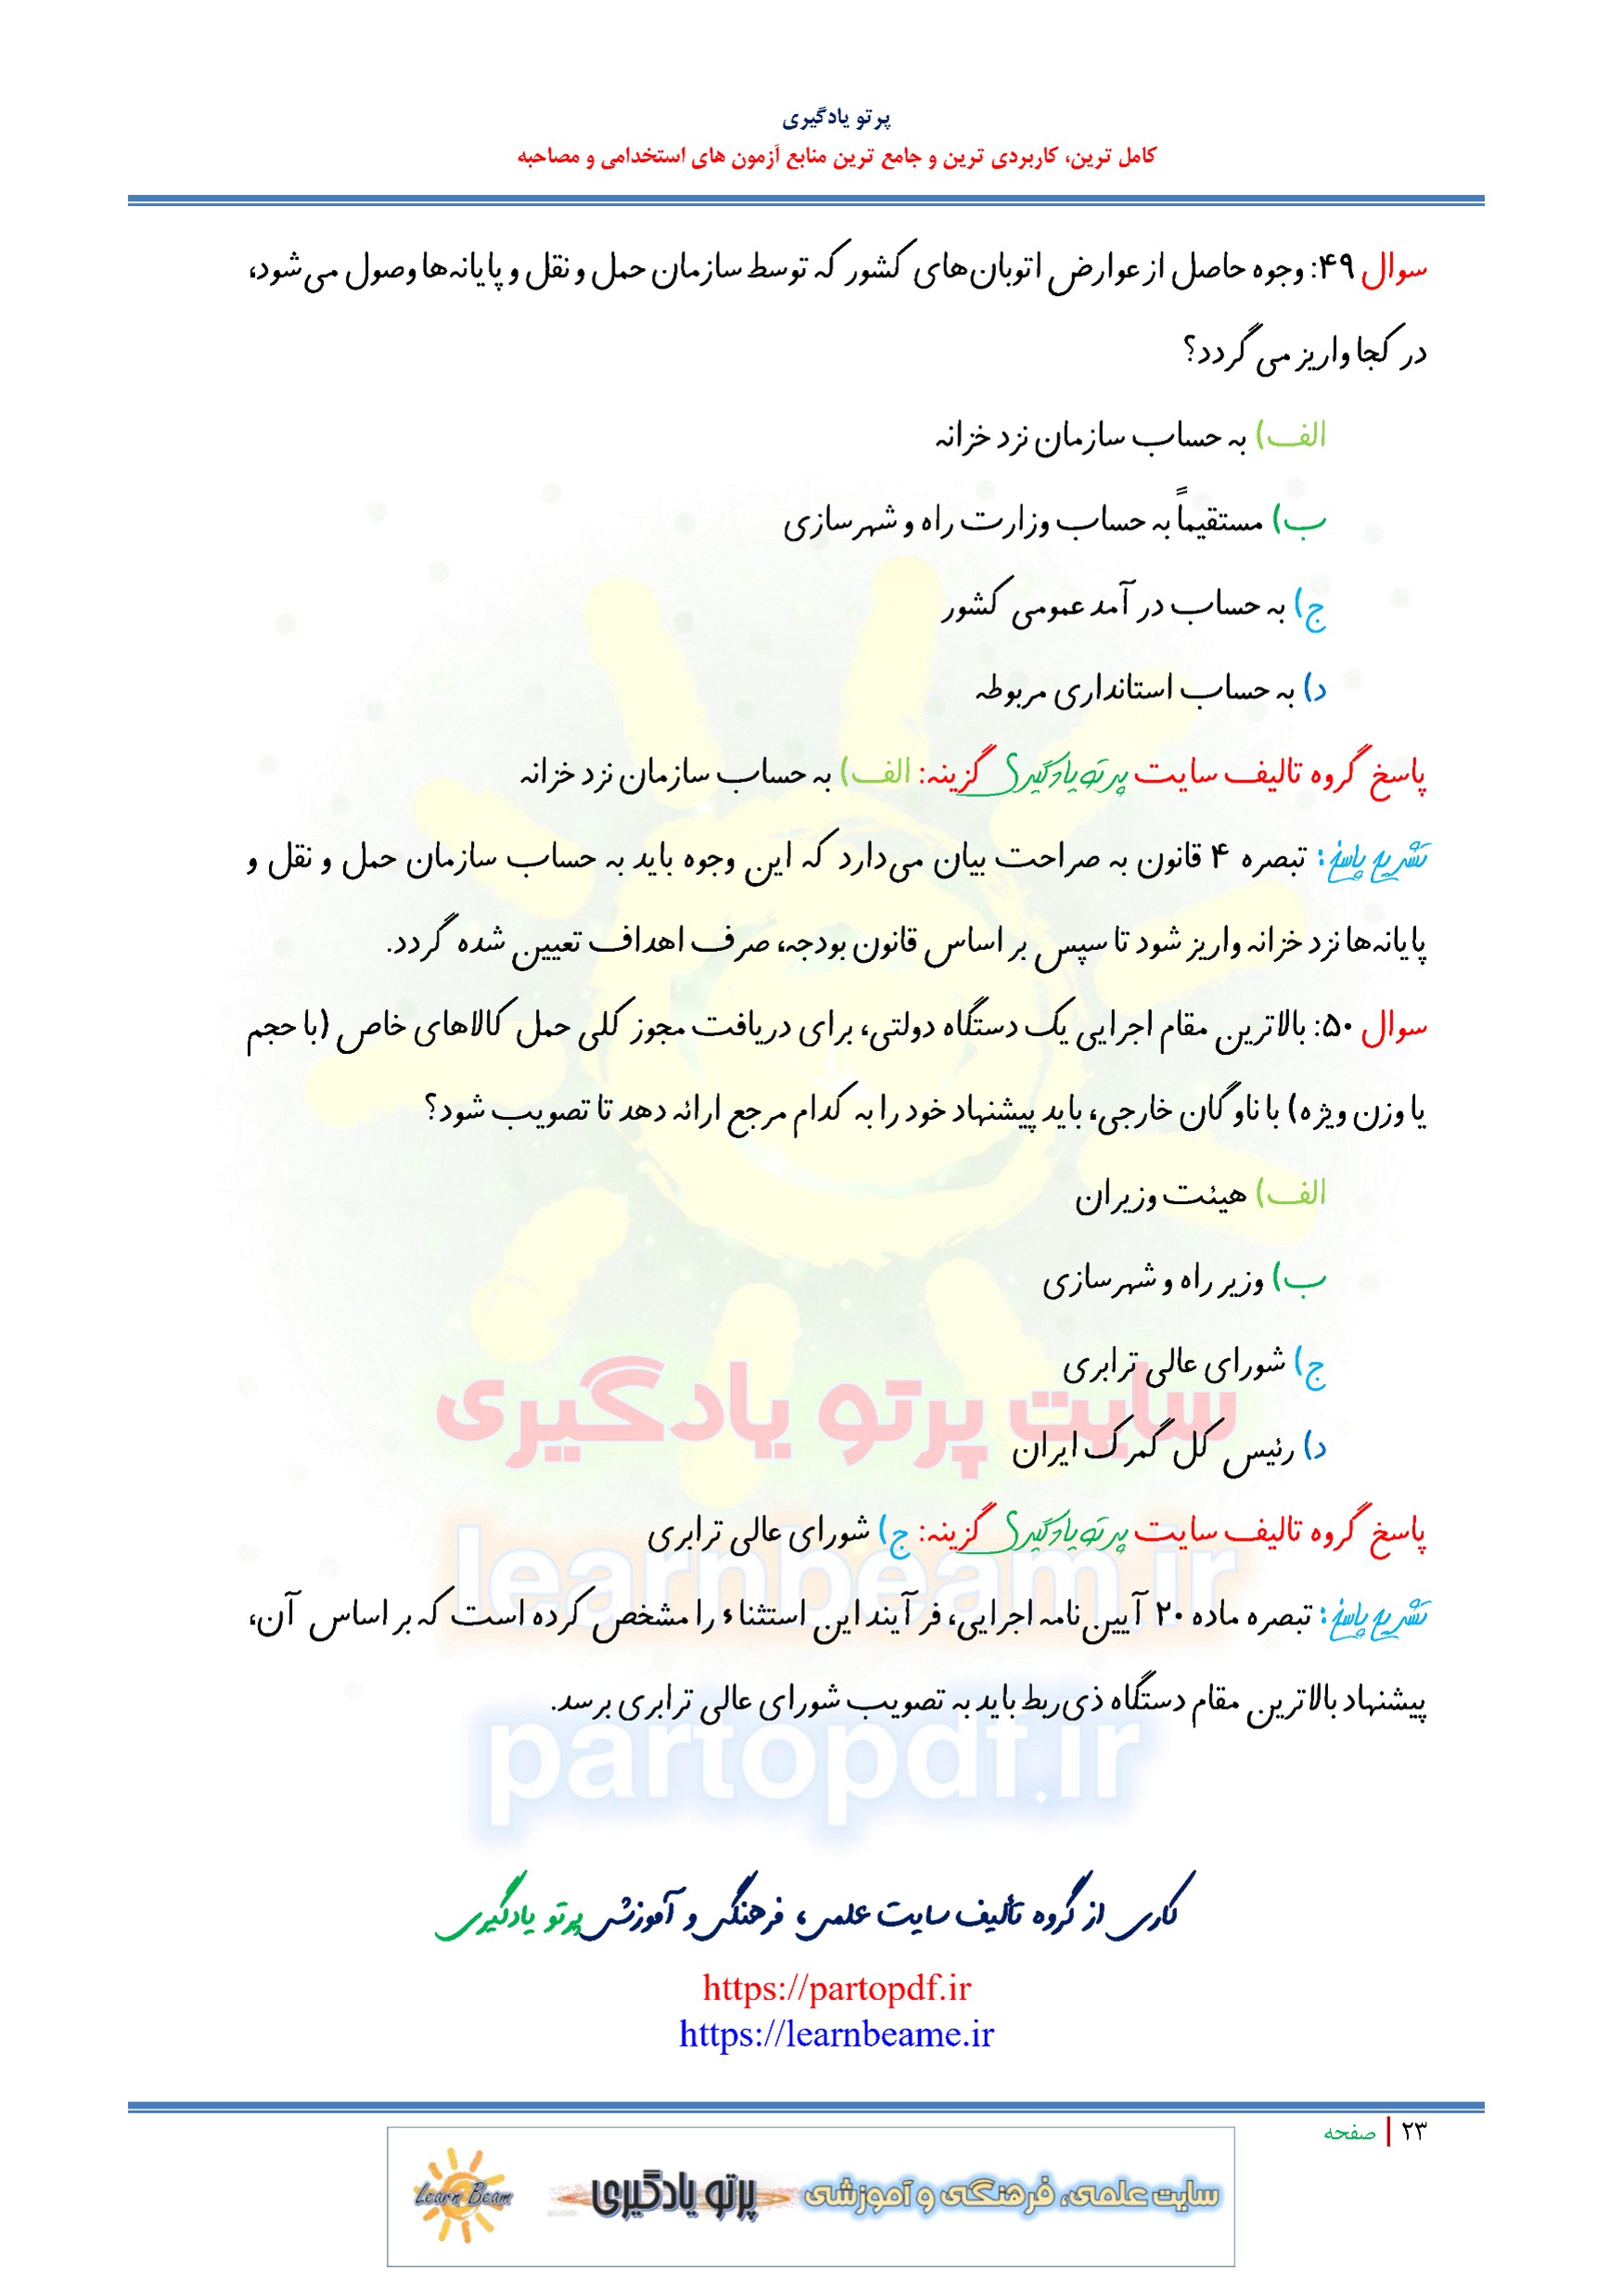 پرتو یادگیری
کامل ترین، کاربردی ترین و جامع ترین منابع آزمون های استخدامی و مصاحبه
سوال ۴۹: وجوه حاصل از عوارض اتوبان‌های کشور که توسط سازمان حمل و نقل و پایانه‌ها وصول می‌شود،
در کجا واریز می گردد؟
الف) به حساب سازمان نزد خزانه
ب) مستقیماً به حساب وزارت راه و شهرسازی
ج) به حساب درآمد عمومی کشور
د) به حساب استانداری مربوطه
پاسخ گروه تالیف سایت پرتو یادگیری گزینه: الف) به حساب سازمان نزد خزانه
تشریح پاسخ: تبصره ۴ قانون به صراحت بیان می‌دارد که این وجوه باید به حساب سازمان حمل و نقل و
پایانه‌ها نزد خزانه واریز شود تا سپس بر اساس قانون بودجه، صرف اهداف تعیین شده گردد.
سوال ۵۰: بالاترین مقام اجرایی یک دستگاه دولتی، برای دریافت مجوز کلی حمل کالاهای خاص (با حجم
یا وزن ویژه) با ناوگان خارجی، باید پیشنهاد خود را به کدام مرجع ارائه دهد تا تصویب شود؟
الف) هیئت وزیران
ب) وزیر راه و شهرسازی
ج) شورای عالی ترابری
د) رئیس کل گمرک ایران
پاسخ گروه تالیف سایت پرتو یادگیری گزینه: ج) شورای عالی ترابری
تشریح پاسخ: تبصره ماده ۲۰ آیین‌نامه اجرایی، فرآیند این استثناء را مشخص کرده است که بر اساس آن،
پیشنهاد بالاترین مقام دستگاه ذی‌ربط باید به تصویب شورای عالی ترابری برسد.
سایت پرتو یادگیری
learnbeam.ir
partopdf.ir
کاری از گروه تألیف سایت علمی، فرهنگی و آموزشی پرتو یادگیری
https://partopdf.ir
https://learnbeame.ir
۲۳ | صفحه
سایت علمی، فرهنگی و آموزشی پرتو یادگیری Learn Beam